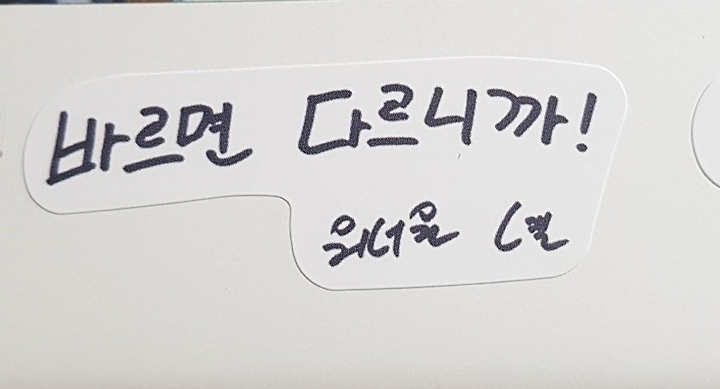 바르면 다르니까!
워너원